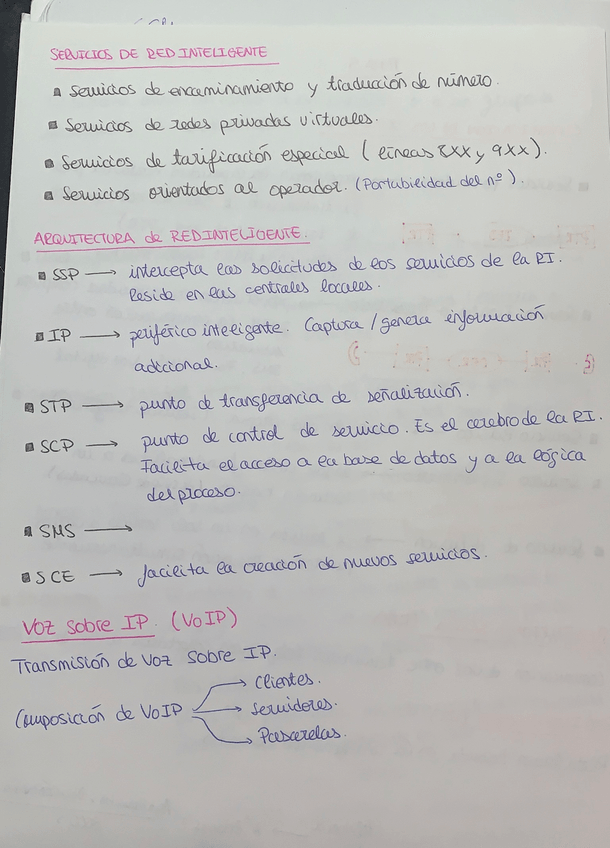 SERVICIOS DE RED INTELIGENTE
Servicios de encaminamiento y traducción de número.
Servicios de redes privadas virtuales.
Servicios de tarificación especial (líneas 8XX y 9XX).
Servicios orientados al operador. (Portabilidad del nº).
ARQUITECTURA de RED INTELIGENTE.
SSP → intercepta las solicitudes de los servicios de la RI.
Reside en las centrales locales.
IP → periférico inteligente. Captura/genera información
adicional.
STP → punto de transferencia de señalización.
SCP → punto de control de servicio. Es el cerebro de la RI.
Facilita el acceso a la base de datos y a la lógica
del proceso.
SMS →
SCE → facilita la creación de nuevos servicios.
Voz sobre IP. (VoIP)
Transmisión de voz sobre IP.
Composición de VoIP → Clientes.
→ Servidores.
→ Pasarelas.